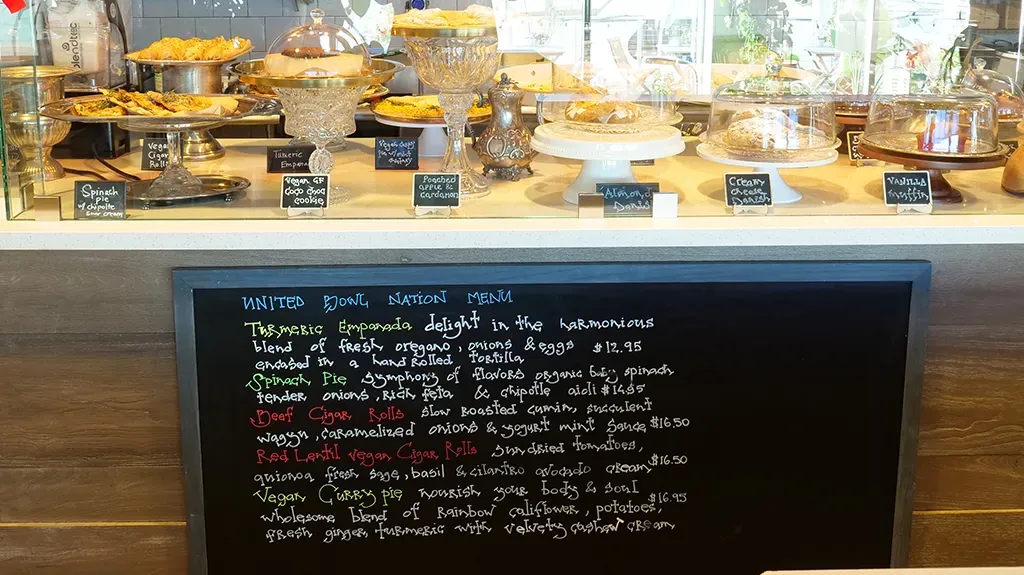 blendtec
Vegan
Cigar
Rolls
Turmeric
Empanada
Vegan
Spinach
pie
w/ chipotle
sour cream
Vegan GF
choc choc
cookie
Poached
apple &
cardamon
Almond
Danish
Creamy
cheese
Danish
Vanilla
muffin
UNITED BOWL NATION MENU
Turmeric Empanada delight in the harmonious
blend of fresh oregano, onions & eggs $12.95
encased in a hand rolled tortilla
Spinach Pie symphony of flavors organic baby spinach
tender onions, rich feta & chipotle aioli $14.95
Beef Cigar Rolls slow roasted cumin, succulent
wagyu, caramelized onions & yogurt mint sauce $16.50
Red Lentil vegan Cigar Rolls sundried tomatoes,
quionoa fresh sage, basil & cilantro avocado cream $16.50
Vegan Curry pie nourish your body & soul $16.95
wholesome blend of Rainbow califlower, potatoes,
fresh ginger, turmeric with velvety cashew cream